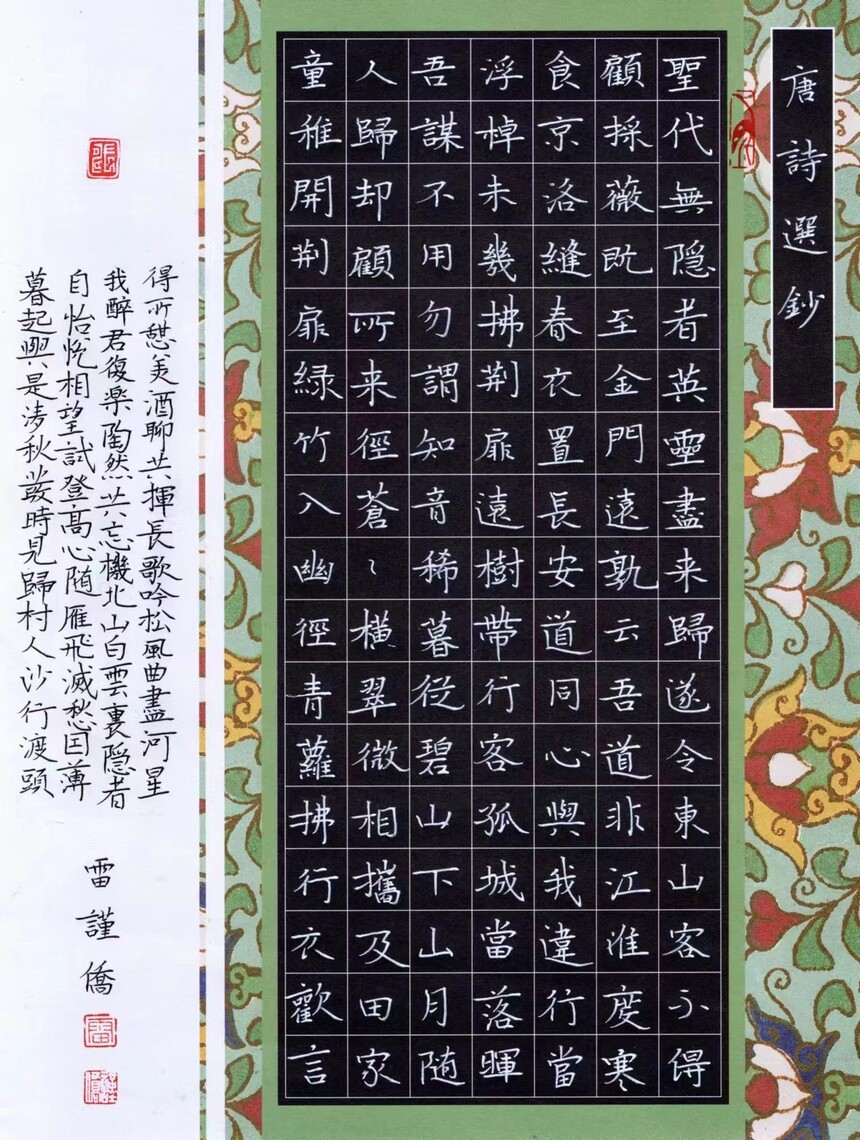 唐詩選鈔
聖代無隠者英靈盡来歸遂令東山客不得
顧採薇既至金門遠孰云吾道非江淮度寒
食京洛縫春衣置長安道同心與我違行當
浮棹未幾拂荆扉遠樹帶行客孤城當落暉
吾謀不用勿謂知音稀暮從碧山下山月随
人歸却顧所来徑蒼〻橫翠微相攜及田家
童稚開荆扉緑竹入幽徑青蘿拂行衣歡言
得所憩美酒聊共揮長歌吟松風曲盡河星
我醉君復樂陶然共忘機北山白雲裏隠者
自怡悦相望試登高心随雁飛滅愁因薄
暮起興是清秋發時見歸村人沙行渡頭
雷謹僑